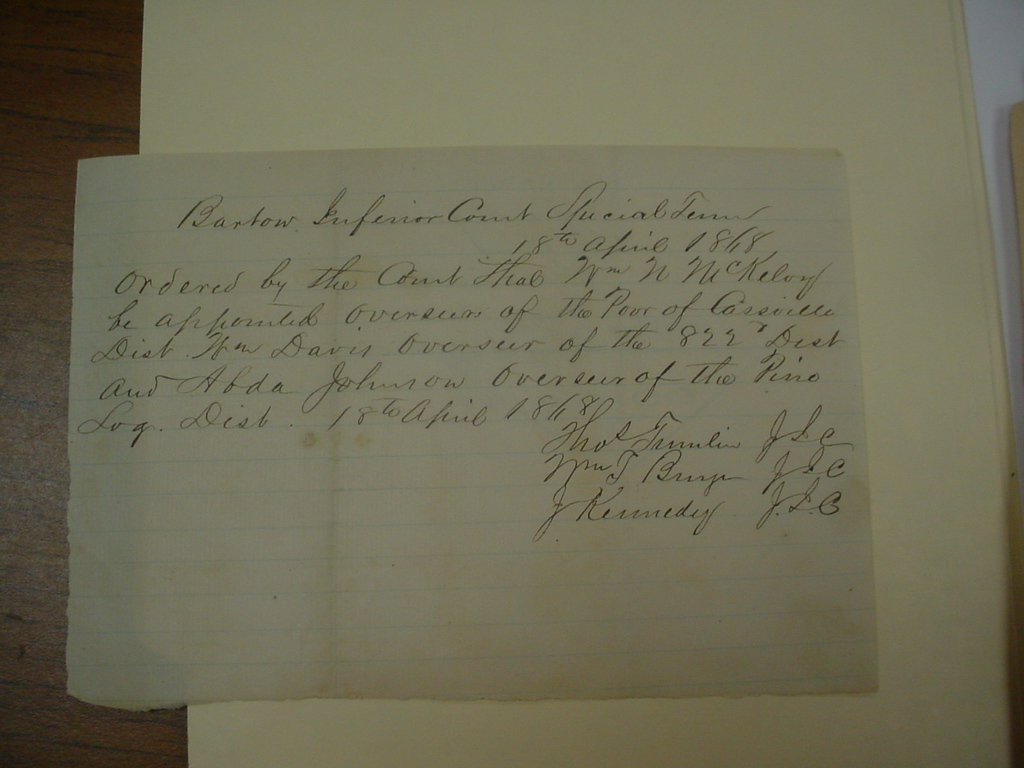 Bartow Inferior Court Special Term
18th April 1868
Ordered by the Court that Wm N McKelvy
be appointed overseer of the Poor of Cassville
Dist. Wm Davis Overseer of the 822d Dist
and Abda Johnson Overseer of the Pine
Log. Dist. 18th April 1868
Thos Tumlin J I C
Wm T J I C
J Kennedy J.I.C